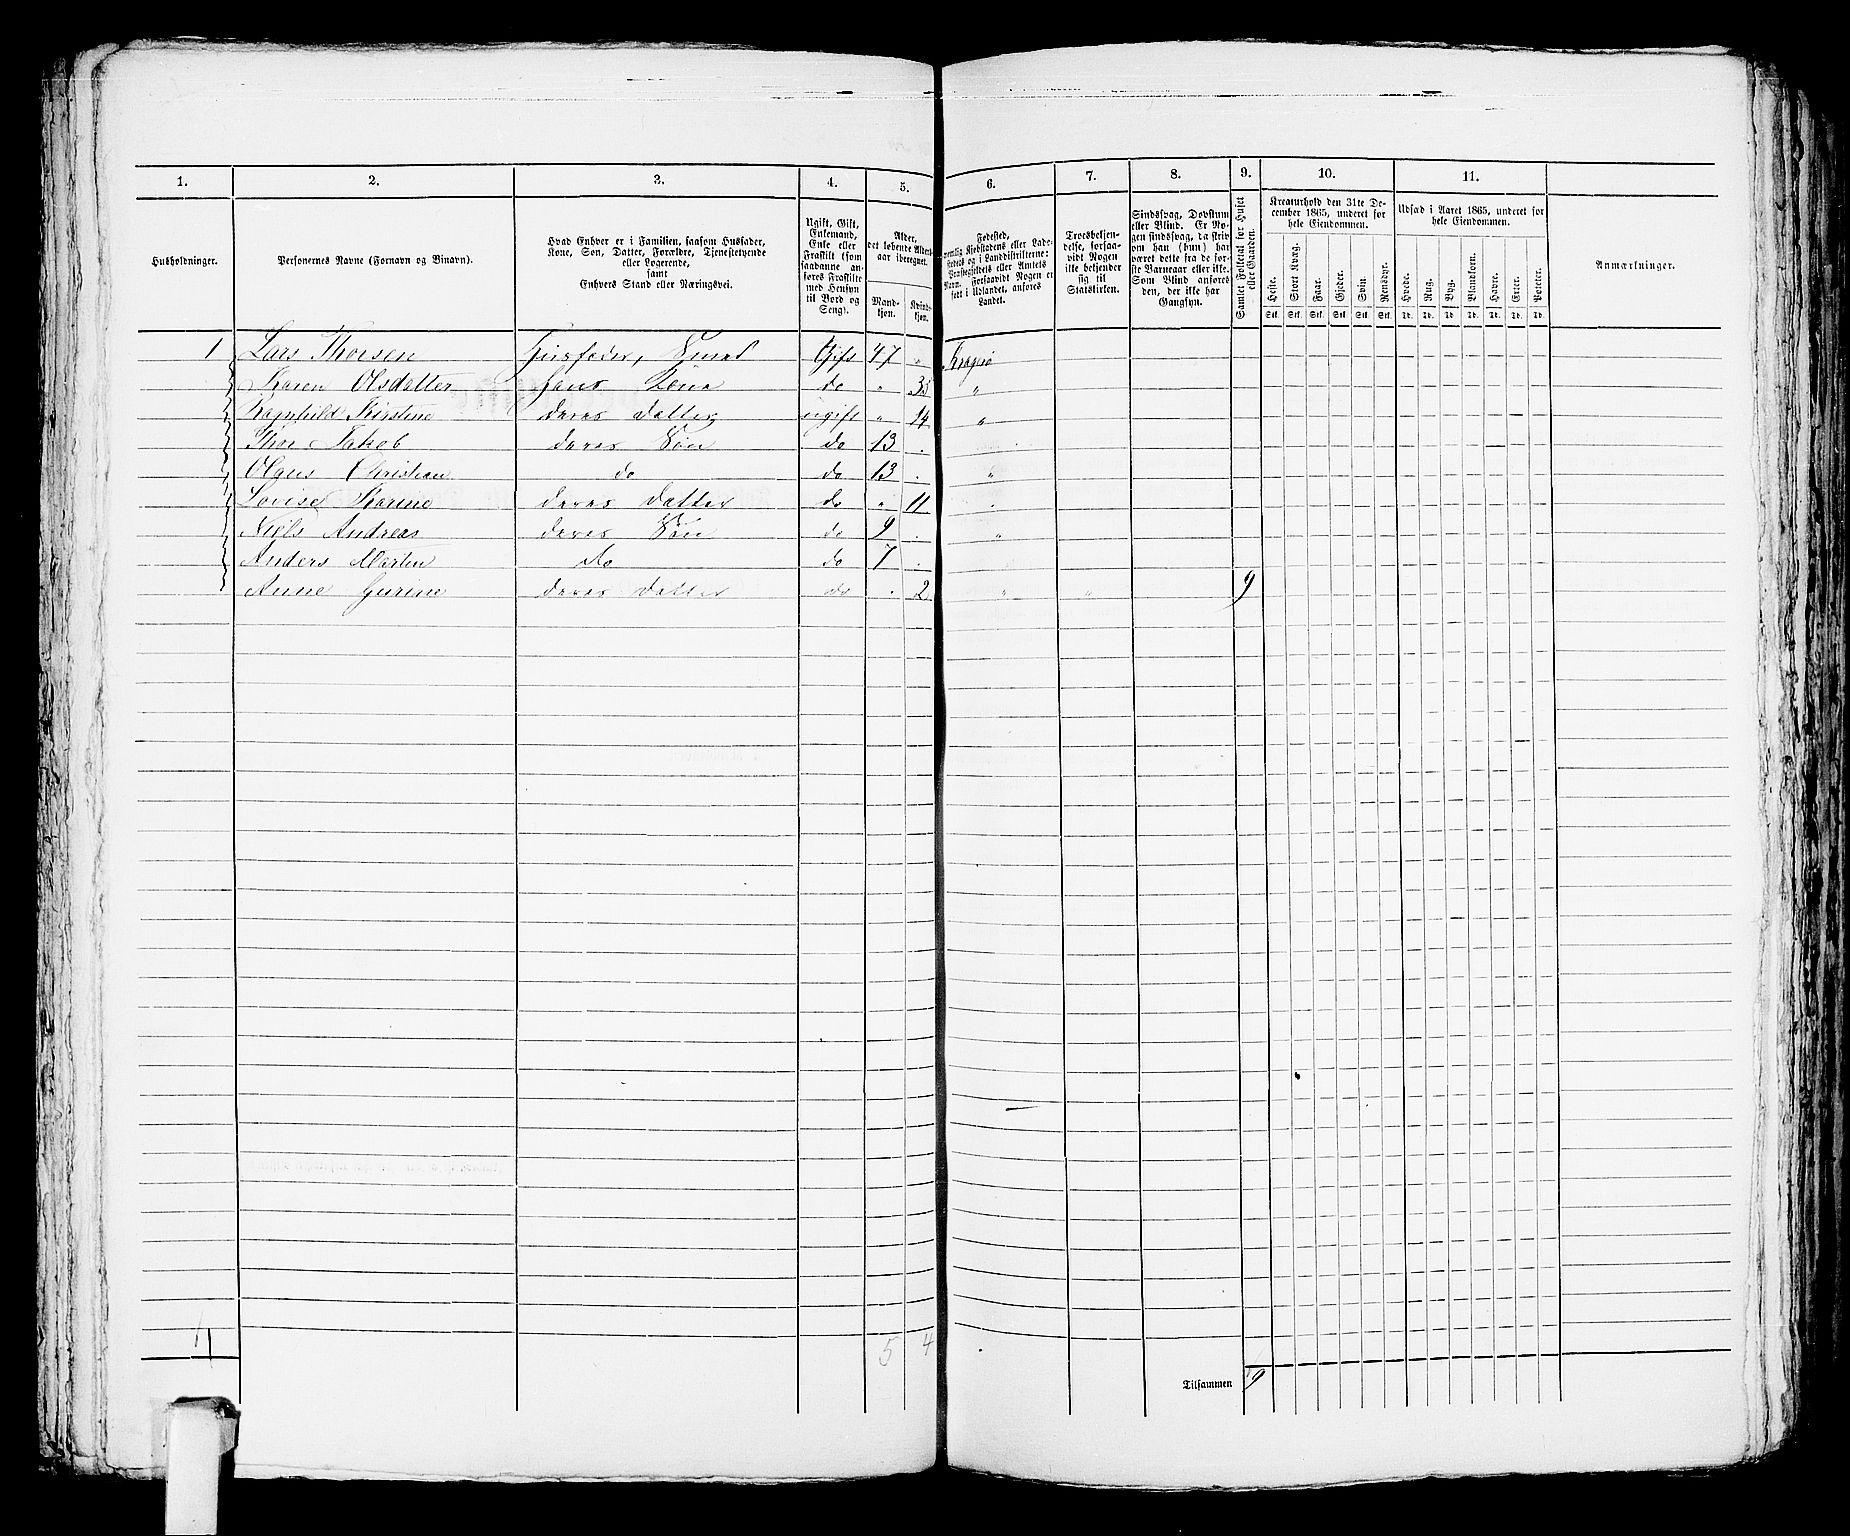 1. 2. 3. 4. 5. 6. 7. 8. 9. 10. 11.
Husholdninger.
Personernes Navne (Fornavn og Binavn).
Hvad Enhver er i Familien, saasom Husfader,
Kone, Søn, Datter, Forældre, Tjenestetyende
eller Logerende,
samt
Enhvers Stand eller Næringsvei.
Ugift, Gift,
Enkemand,
Enke eller
Fraskilt (som
saadanne an-
føres Fraskilte
med Hensyn
til Bord og
Seng).
Alder,
det løbende Alders-
aar iberegnet.
Mand-
kjøn.
Kvinde-
kjøn.
Fødested,
nemlig Kjøbstadens eller Lade-
stedets og i Landdistrikterne:
Præstegjeldets eller Amtets
Navn. Forsaavidt Nogen er
født i Udlandet, anføres
Landet.
Troesbekjen-
delse, forsaa-
vidt Nogen
ikke bekjender
sig til
Statskirken.
Sindssvag, Døvstum
eller Blind. Er No-
gen sindssvag, da skriv
om han (hun) har
været dette fra de før-
ste Barneaar eller ikke.
Som Blind anføres
den, der ikke har
Gangsyn.
Samlet Folketal for Huset
eller Gaarden.
Kreaturhold den 31te De-
cember 1865, underet for
hele Eiendommen.
Heste. Stort Kvæg. Faar. Gjeder. Svin. Rensdyr.
Stk. Stk. Stk. Stk. Stk. Stk.
Udsæd i Aaret 1865, underet for
hele Eiendommen.
Hvede. Rug. Byg. Blandkorn. Havre. Erter. Poteter.
Td. Td. Td. Td. Td. Td. Td.
Anmærkninger.
1 Lars Thorsen Husfader, Smed Gift 47 " Kragerø
Karen Olsdatter hans Kone do " 35 "
Ragnhild Kirstine deres Datter ugift " 14 "
Thor Jakob deres Søn do 13 .
Olaus Christian do do 13 . "
Lovise Karine deres Datter do " 11 "
Niels Andreas deres Søn do 9 . "
Anders Martin do do 7 .
Anne Gurine deres Datter do . 2 " " 9
1 5 4
Tilsammen 9